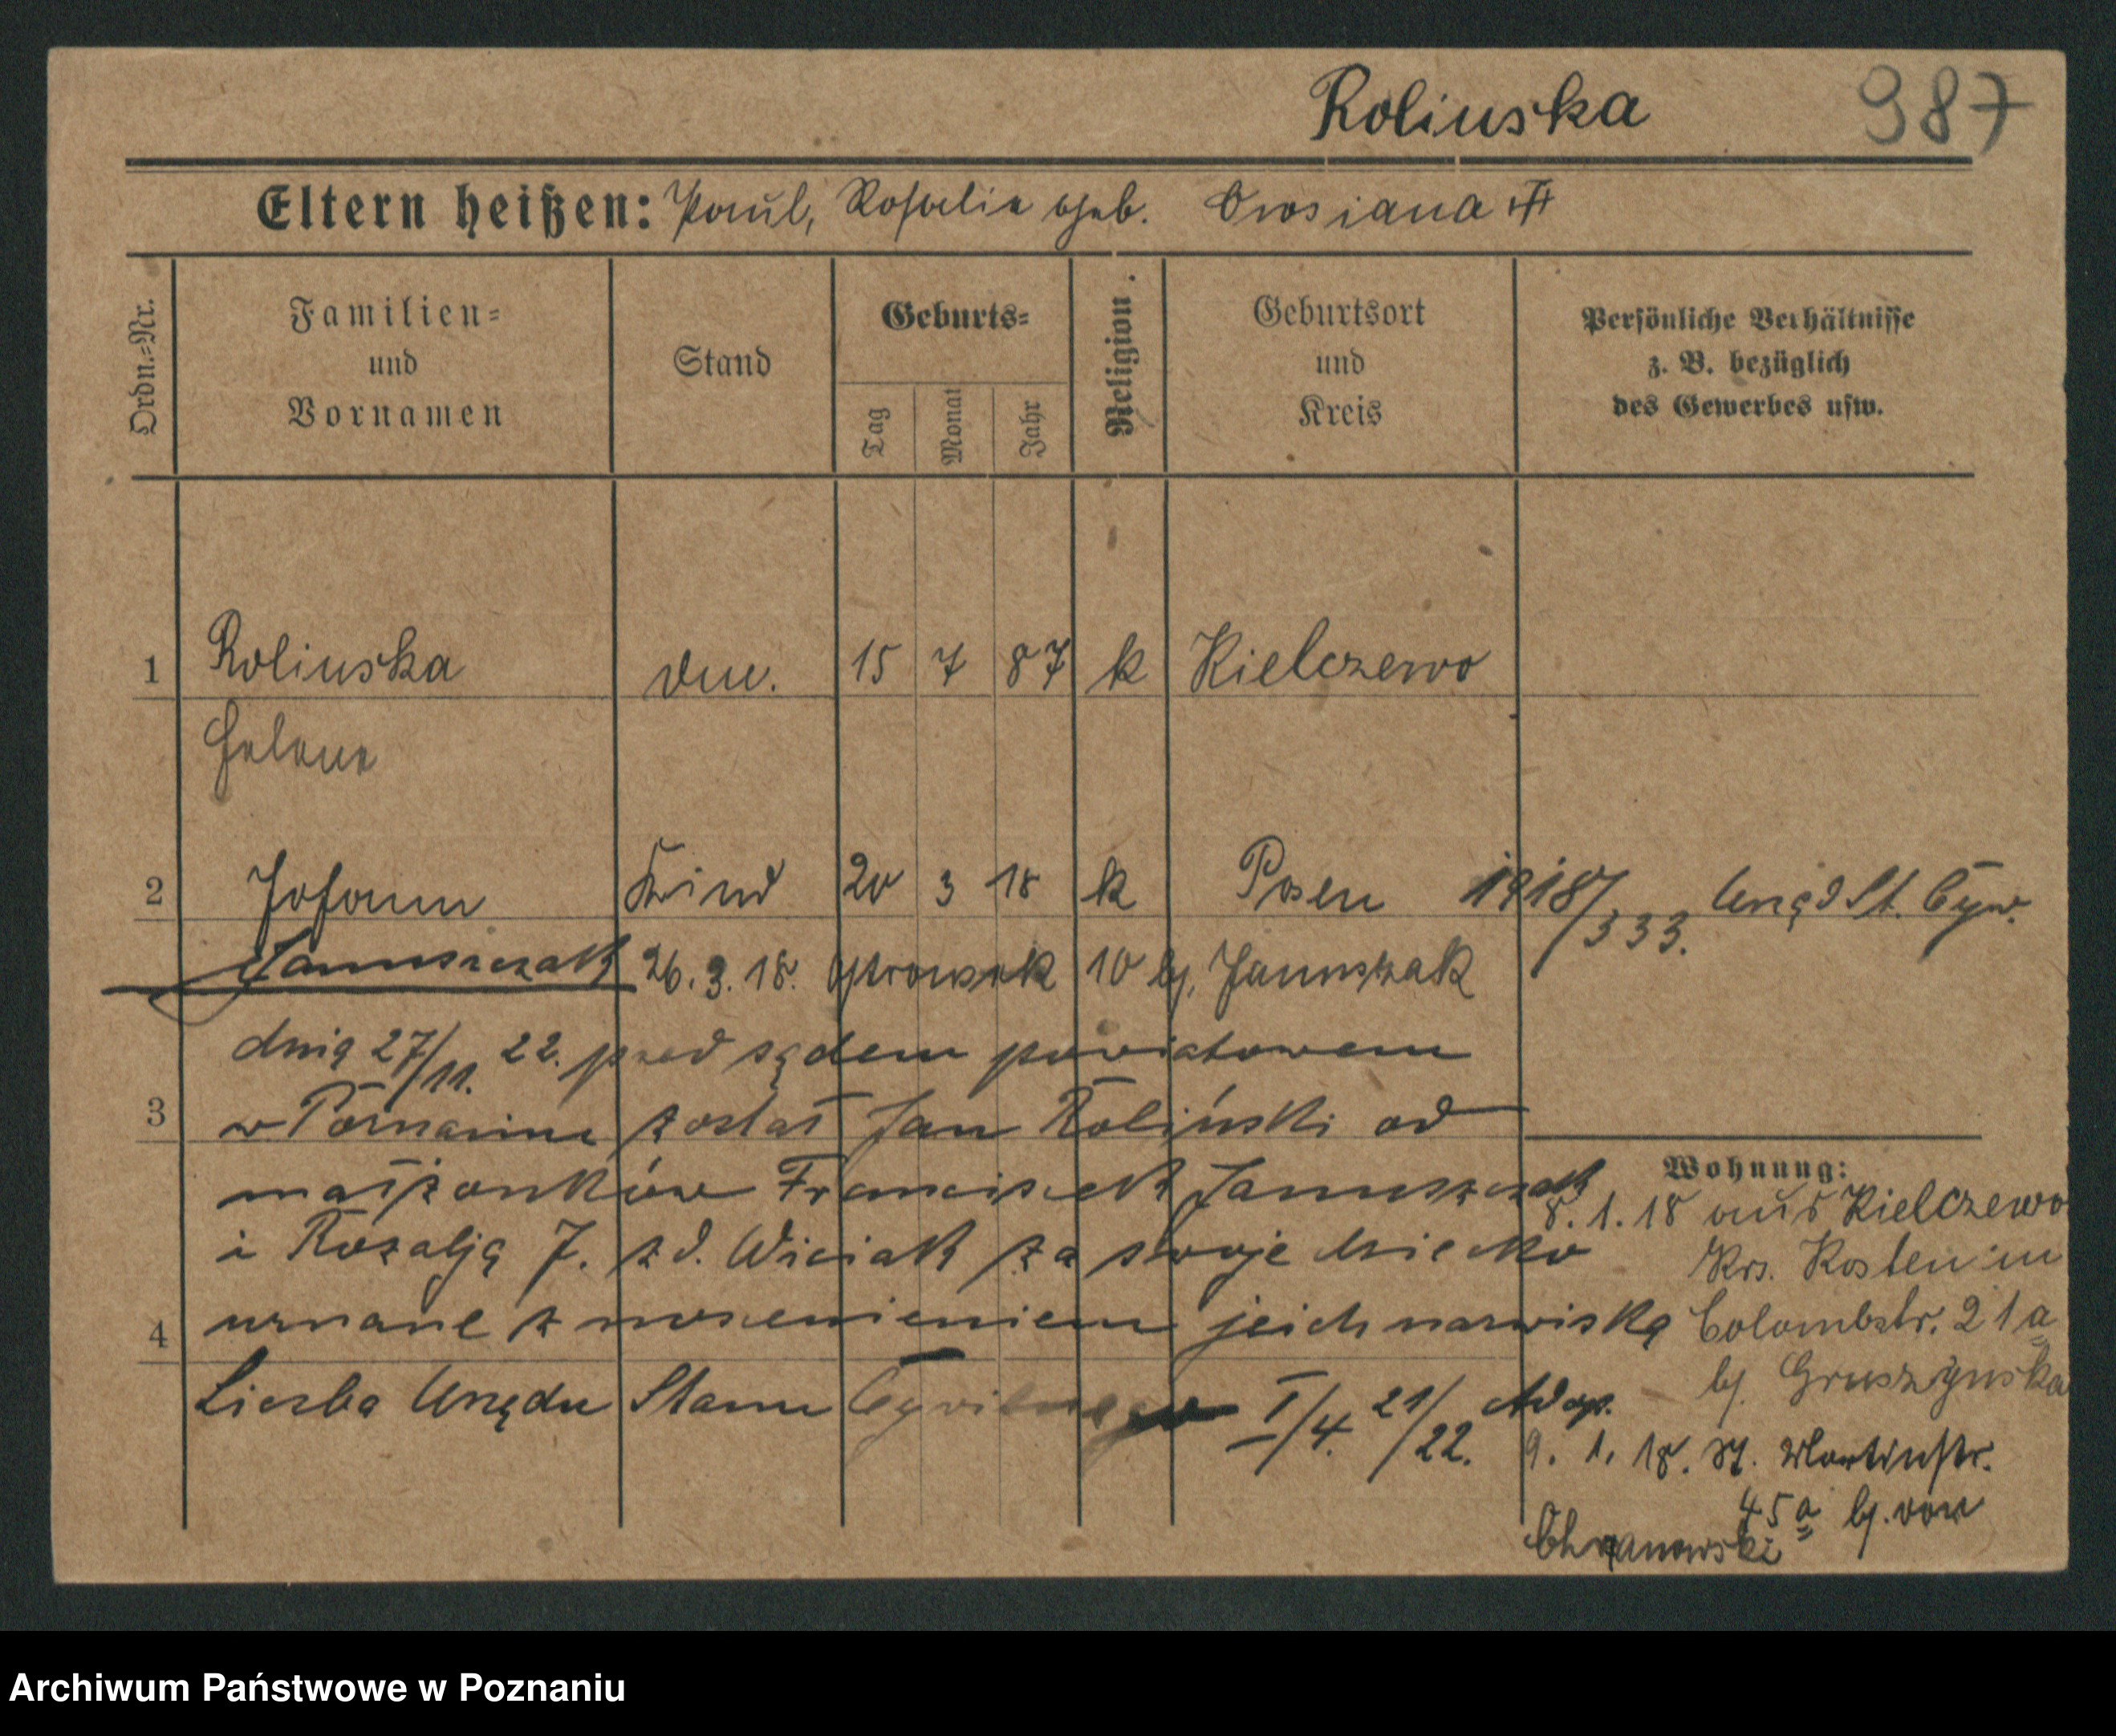 Roliuska 987
Eltern heißen: Paul, Rosalie geb. Owsiana ++
Ordn.-Nr.
Familien-
und
Vornamen
Stand
Geburts-
Tag
Monat
Jahr
Religion.
Geburtsort
und
Kreis
Persönliche Verhältnisse
z. B. bezüglich
des Gewerbes usw.
1 Roliuska 15 7 87 k Kielczewo
Helene
2 Johann Kind 20 3 18 k Posen 1918/333. Urząd St. Cyw.
Januszczak 26.3.18. 10 bj. Januszak
dnią 27/11. 22. przed sądem powiatowem
3 w Poznaniu został Jan Roliński od
małżonków Franciszek Januszczak
i Rozalją J. zd. Wiciak za swoje dziecko
4 uznane z jeich nazwiska
Liczba Urzędu Stanu Cywilnego I/4. 21/22. Adop.
Wohnung:
8.1.18 aus Kielczewo
Krs. Kosten in
Colombstr. 21a
bj. Gruszynska
9.1.18. St. Martinstr.
45a bj. von
Chrzanowski
Archiwum Państwowe w Poznaniu